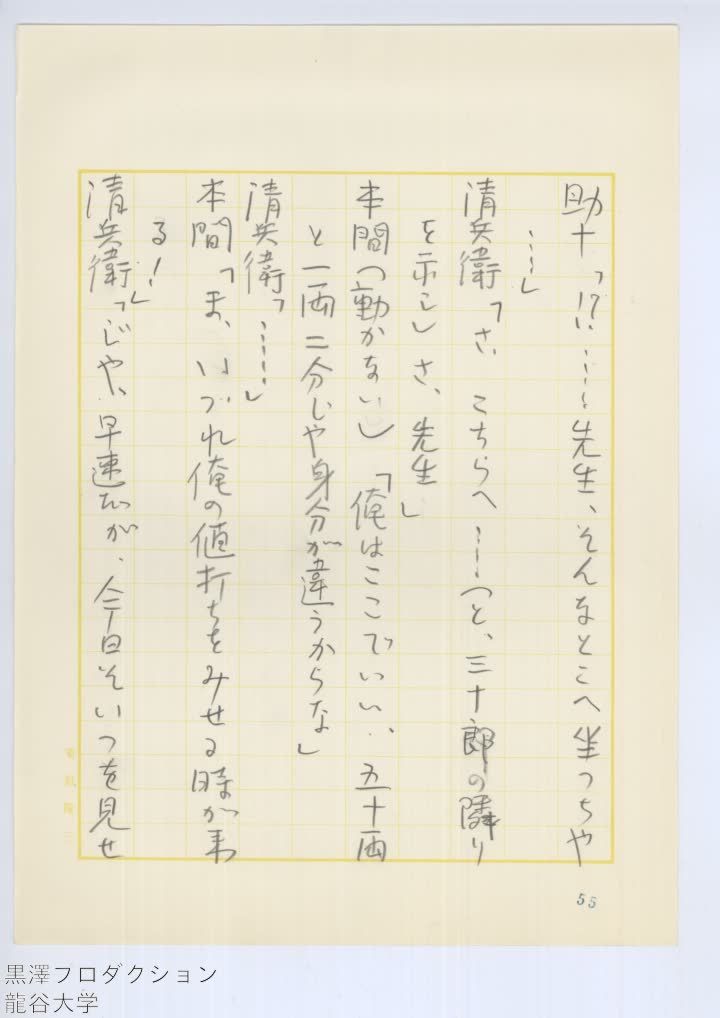 助十「!?……先生、そんなとこへ坐っちゃ
……」
清兵衛「さ、こちらへ……(と、三十郎の隣り
を示し)さ、先生」
本間(動かない)「俺はここでいい、五十両
と一両二分じゃ身分が違うからな」
清兵衛「……」
本間「ま、いづれ俺の値打ちをみせる時が来
る!」
清兵衛「じゃ、早速だが、今日そいつを見せ
55
黒澤プロダクション
龍谷大学